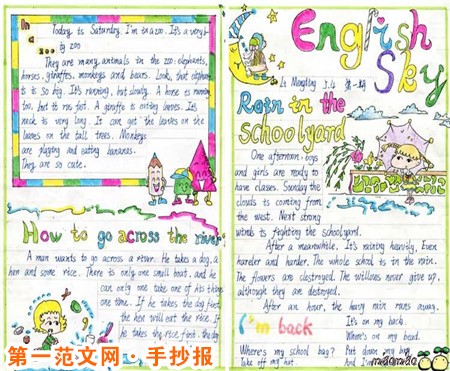 In
a
zoo
Today is Saturday. I'm in a zoo. It's a very
big zoo
They are many animals in the zoo: elephants,
horses, giraffes, monkeys and bears. Look, that elephant
is so big. It's running, but slowly. A horse is running
too, but it's fast. A giraffe is eating leaves. It's
neck is very long. It can get the leaves on the
leaves on the tall trees. Monkeys
are playing and eating bananas.
They are so cute.
How to go across the river
A man wants to go across a river. He takes a dog, a
hen and some rice. There is only one small boat, and he
can only one take one of his things
one time. If he takes the dog first,
the hen will eat the rice. If
he takes the rice first, the dog
English
Sky
Rain in the
schoolyard
One afternoon, boys
and girls are ready to
have classes. Sunday the
clouds is coming from
the west. Next strong
winds is fighting the schoolyard.
After a meanwhile, It's raining heavily, Even
harder and harder. The whole school is in the rain.
The flowers are clestroyed. The willows never give up,
although they are destroyed.
After an hour, the heavy rain runs away.
I'm back
Where's my school bag?
Take off my hat.
It's on my back.
Where's on my head.
Put down my bag
And I'm
miaomiao
第一范文网·手抄报